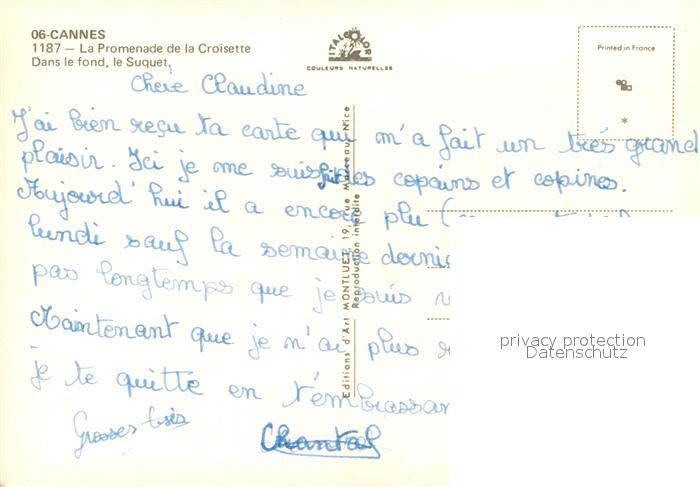 06-CANNES
1187 — La Promenade de la Croisette
Dans le fond, le Suquet.
ITALCOLOR
COULEURS NATURELLES
Printed in France
*
Chère Claudine
J'ai bien reçu ta carte qui m'a fait un très grand
plaisir. Ici je me suis fait des copains et copines.
Aujourd'hui il a encore plu
lundi sauf la semaine
pas longtemps que je suis
Maintenant que je n'ai plus
je te quitte en
Grosses bises
Chantal
Editions d'Art MONTLUET 19, rue Marceau, Nice
Reproduction interdite
privacy protection
Datenschutz